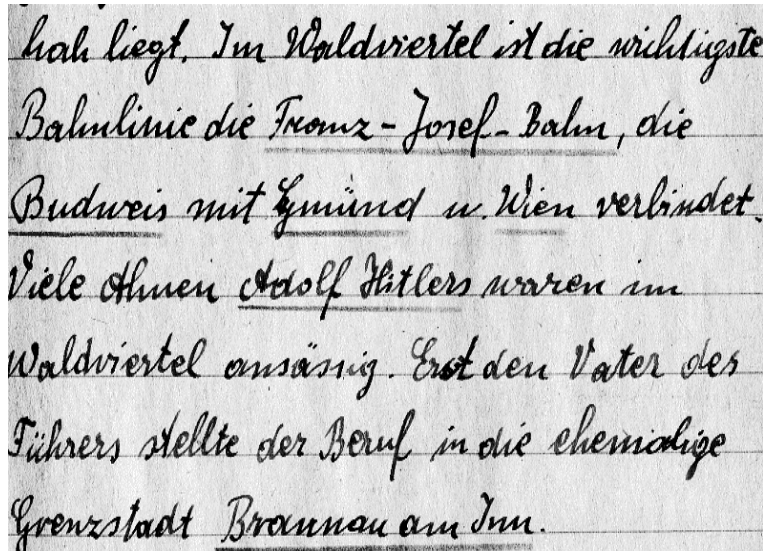 hah liegt. Im Waldviertel ist die wichtigste
Bahnlinie die Franz-Josef-Bahn, die
Budweis mit Gmünd u. Wien verbindet.
Viele Ahnen Adolf Hitlers waren im
Waldviertel ansässig. Erst den Vater des
Führers stellte der Beruf in die ehemalige
Grenzstadt Braunau am Inn.